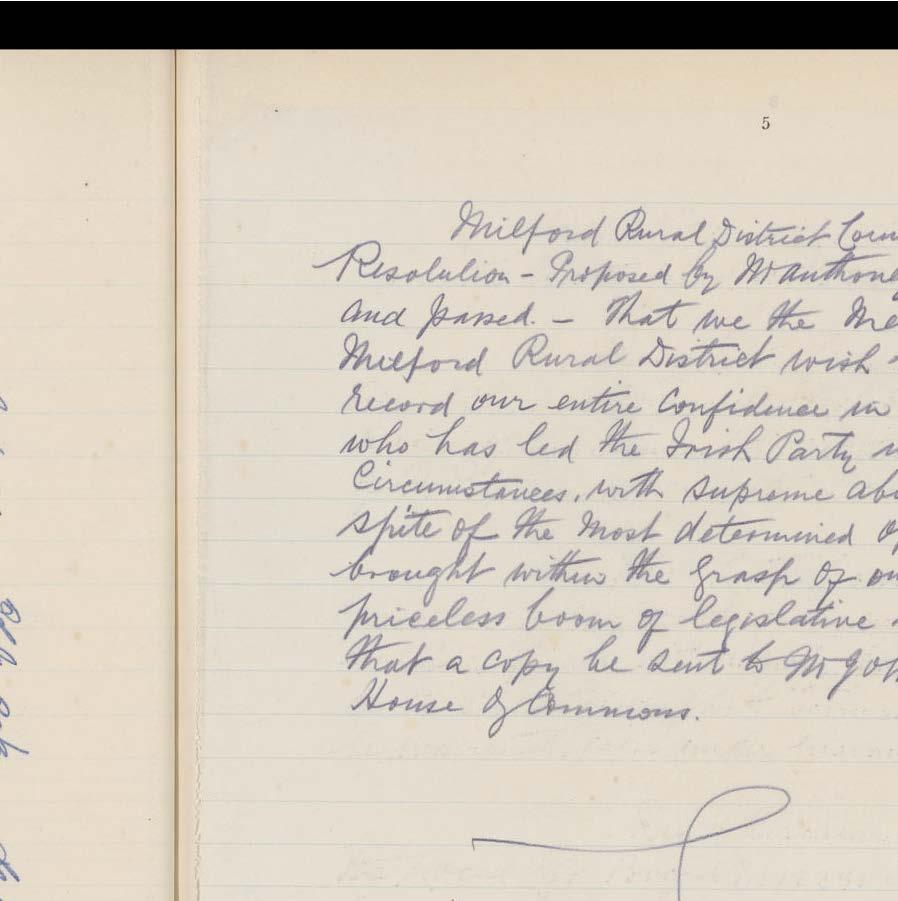 5
Milford Rural District Coun
Resolution - Proposed by Mr Anthony
and passed. - That we the Me
Milford Rural District wish
record our entire Confidence in
who has led the Irish Party
Circumstances, with supreme abi
spite of the most determined Op
brought within the grasp of ou
priceless boom of legislative
that a copy be sent to Mr
House Of Commons.